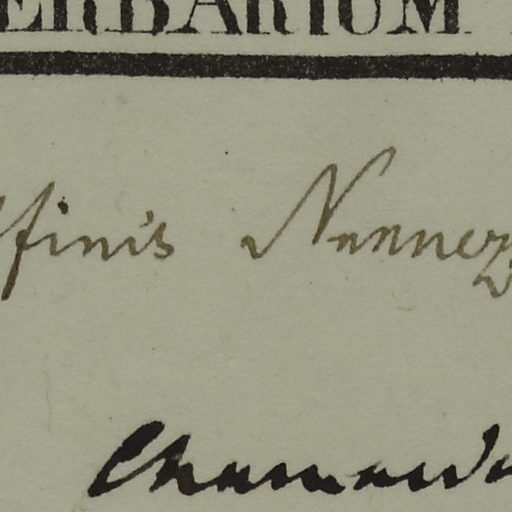 ERBARIUM
ffinis Nannez
Chamaed